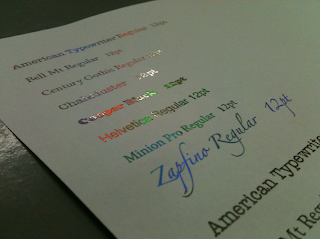 American Typewriter Regular 12pt
Bell Mt Regular 12pt
Century Gothic Regular 12pt
Chalkduster 12pt
Cooper Black 12pt
Helvetica Regular 12pt
Minion Pro Regular 12pt
Zapfino Regular 12pt
American Typewrite
Mt Regu